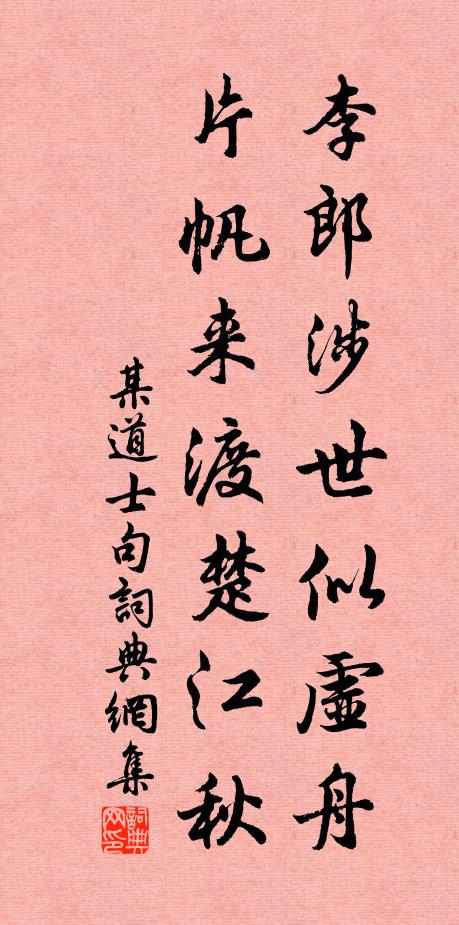 李郎涉世似虛舟
片帆来渡楚江秋
某道士句詞典網集
詞典网印